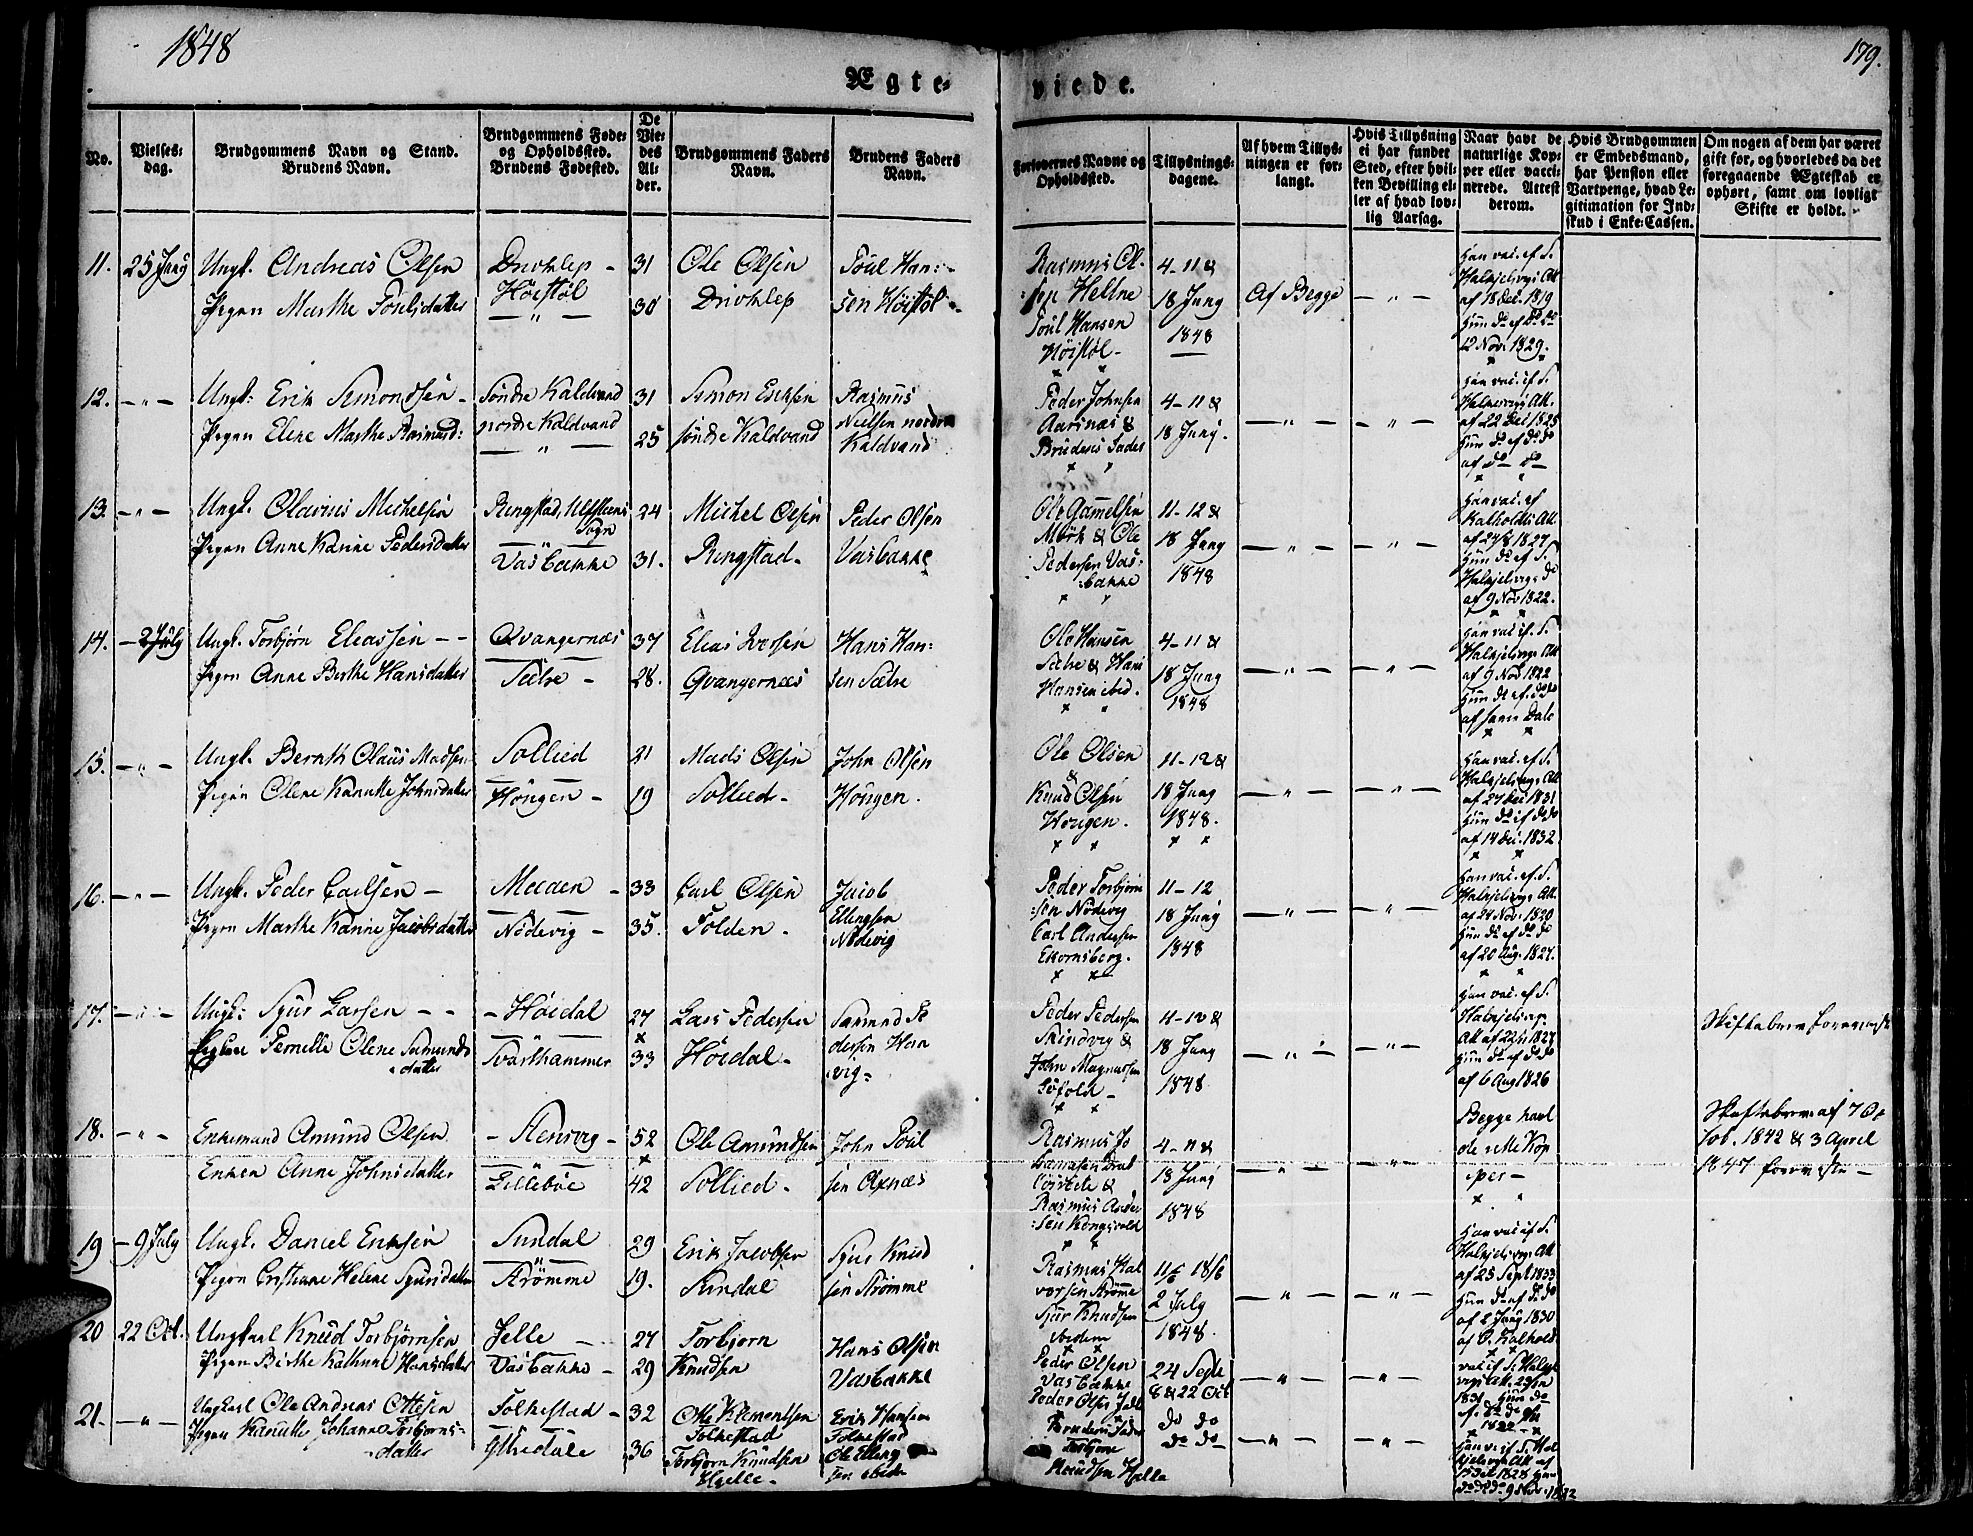 1848
179.
Ægte-
viede.
No.
Vielses-
dag.
Brudgommens Navn og Stand.
Brudens Navn.
Brudgommens Føde-
og Opholdssted.
Brudens Fødested.
De
Vie-
des
Al-
der.
Brudgommens Faders
Navn.
Brudens Faders
Navn.
Forlovernes Navne og
Opholdssted.
Tillysnings-
dagene.
Af hvem Tillys-
ningen er for-
langt.
Hvis Tillysning
ei har fundet
Sted, efter hvil-
ken Bevilling el-
ler af hvad lov-
lig Aarsag.
Naar havt de
naturlige Kop-
per eller vacci-
nerede. Attest
derom.
Hvis Brudgommen
er Embedsmand,
har Pension eller
Vartpenge, hvad Le-
gitimation for Ind-
skud i Enke-Cassen.
Om nogen af dem har været
gift før, og hvorledes da det
foregaaende Ægteskab er
ophørt, samt om lovligt
Skifte er holdt.
11. 25 Juny Ungk. Andreas Olsen
Pigen Marthe Poulsdatter
Drivklep -
Høistøl
31
30
Ole Olsen
Drivklep
Poul Han:
sen Høistøl
Rasmus Ol-
:sen Hellne
Poul Hansen
Høistøl -
4-11 &
18 Juny
1848
Af Begge
Han vac. ef. S.
Halkjelsvigs Att
af 18 Dec. 1819
Hun do ef do do
12 Nov. 1829.
12. Ungk: Erik Simondsen -
Pigen Elene Marthe Rasmusd:
Søndre Kaldvand
nordre Kaldvand
31
25
Simon Ericksen
søndre Kaldvand
Rasmus
Nielsen nordre
Kaldvand
Peder Johnsen
Aarsnæs &
Brudens Fader
4-11 &
18 Juny.
Han vac. ef. S.
af 22 Dec 1825
Hun do ef do do
af do do
13. Ungk. Olavius Michelsen
Pigen Anne Karine Pedersdatter
Ringstad, Ulfsteens
Sogn
Vasbakke
24
31.
Michel Olsen
Ringstad.
Peder Olsen
Vasbakke
Ole Gamelsen
Mørk & Ole
Pedersen Vas:
:bakke
11-12 &
18 Juny
1848
Han vac. ef
Katholdts Att
af 24/8 1827
Hun do ef S.
Halkjelsvigs do
af 9 Nov 1822.
14. 2 July Ungk. Torbjørn Eliassen
Pigen Anne Berthe Hansdatter
Qvangernæs
Sætre -
37
28.
Elias Iversen
Qvangernæs
Hans Han:
sen Sætre
Ole Hansen
Sætre & Hans
Hansen ibid.
4-11 &
18 Juny
1848
Han vac. ef. S.
Halkjelsvigs Att
af 9 Nov 1822
Hun do ef. do do
af samme Dato
15. Ungk. Bernth Olaus Madsen
Pigen Olene Kanutte Johnsdatter
Sollied
Hougen -
21
19
Mads Olsen
Sollied -
John Olsen
Hougen.
Ole Olsen
&
Knud Olsen
Hougen.
11-12 &
18 Juny
1848.
Han vac. ef. S.
Halkjelsvigs Att
af 27 Dec 1831
Hun do ef do do
af 14 Dec. 1832
16. Ungk. Peder Carlsen -
Pigen Marthe Karine Jacobsdatter
Nødevig -
33
35.
Carl Olsen
Folden.
Jacob
Ellingsen
Nødevig
Peder Torbjørn
:sen Nødevig
Carl Andersen
Ekornsberg.
11-12
18 Juny
1848
Han vac. ef. S.
Halkjelsvigs Att
af 24 Nov. 1820
Hun do ef do do
af 20 Aug. 1827.
17. Ungk: Sjur Larsen - -
Pernille Olene Samunds
datter
- Høidal
Svarthammer
27
33
Lars Pedersen
Høidal -
Samund Pe
dersen Hæ
vig -
Peder Pedersen
Skindvig &
John Magnussen
11-12 &
18 Juny
1848
Han vac. ef S.
Halkjelsvigs
Hun do ef do do
af 6 Aug 1826
Skiftebrev forevist
18. Enkemand Amund Olsen
Enken Anne Johnsdatter
- Stensvig -
Lillebøe
52
42
Ole Amundsen
Sollied -
John Poul
sen Oxnæs
Rasmus Jo
Rasmus Ander
:sen Kongsvold
4-11 &
18 Juny
1848
Begge havt
de rette Kop
per -
Skiftebrev af 7 Oc
tob. 1842 & 3 April
1847 foreviste -
19 - 9 July Ungk. Daniel Eriksen
Pigen Cristiane Helene Sjursdatter
Sundal
Strømme
29
19.
Erik Jacobsen
Sundal
Sjur Knud
sen Strømme
Rasmus Hal
vorsen Strømme
Sjur Knudsen
ibidem
11/6 18/6
2 July
1848.
Han vac. ef S.
Halkjelsvigs Att
af 25 Sept 1833
Hun do ef do do
af 8 Juny 1830
20 22 Oct. Ungkarl Knud Torbjørnsen
Pigen Berthe Kathrine Hansdatter
Jelle
Vasbakke -
27
29
Torbjørn
Knudsen
Hans Olsen
Vasbakke
Peder Olsen
Vasbakke
Peder Olsen Jelle
24 Septe
8 & 22 Oct
21. Ungkarl Ole Andreas Ottesen
Pigen Kanutte Johanne Torbjørns-
-datter
Folkestad -
32
36
Otte Klementsen
Folkestad
Torbjørn Knudsen
Hjelle -
Erik Hansen
Folkestad
Ole Elling
sen ibidem
Brudens Fader
Torbjørn
Knudsen Hjelle
do do
do do